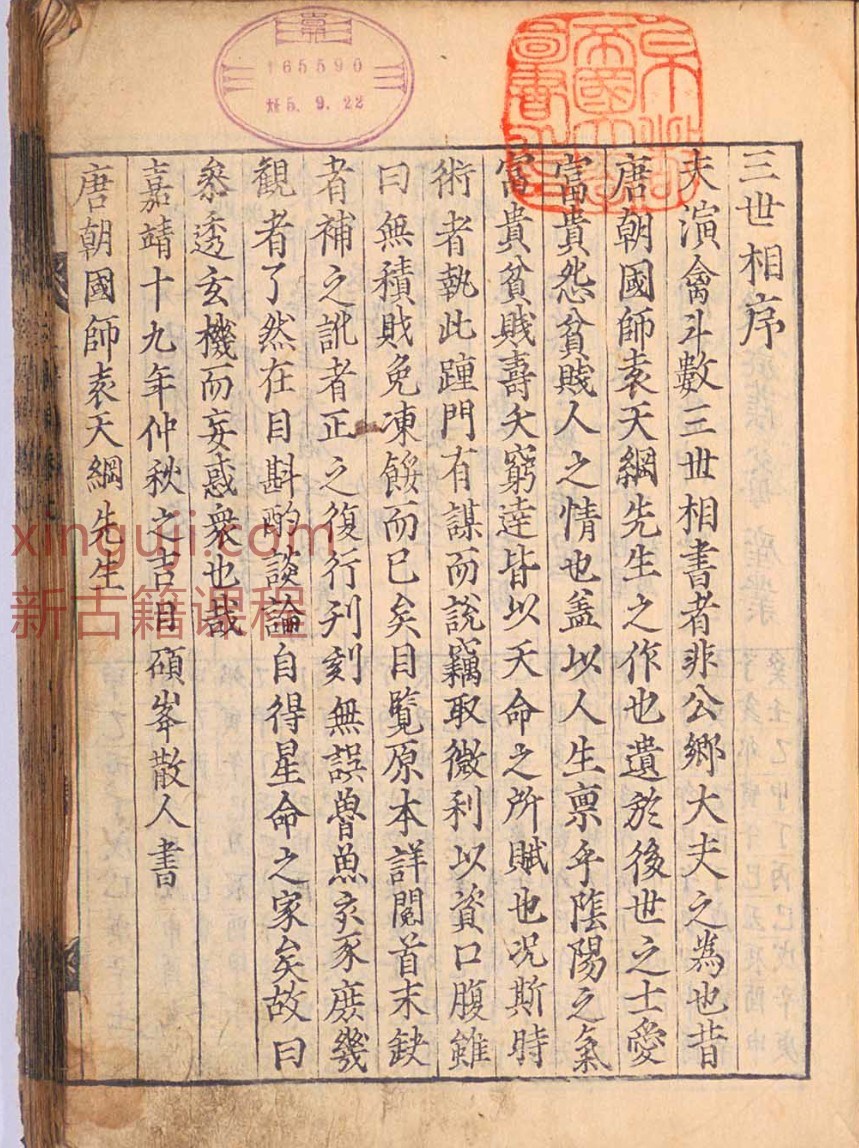 三世相序
夫演禽斗數三世相書者非公鄉大夫之為也昔
唐朝國師袁天綱先生之作也遺於後世之士愛
富貴怨貧賤人之情也盖以人生禀乎陰陽之氣
富貴貧賤壽夭窮達皆以天命之所賦也况斯時
術者執此踵門有謀而說竊取微利以資口腹雖
曰無積賍免凍餒而已矣目覽原本詳閱首末缺
者補之訛者正之復行刋刻無誤魯魚亥豕庶幾
観者了然在目斟酌談論自得星命之家矣故曰
叅透玄機而妄惑衆也哉
嘉靖十九年仲秋之吉日碩峯散人書
唐朝國師袁天綱先生
165590
5.9.22
xinguji.com
新古籍课程